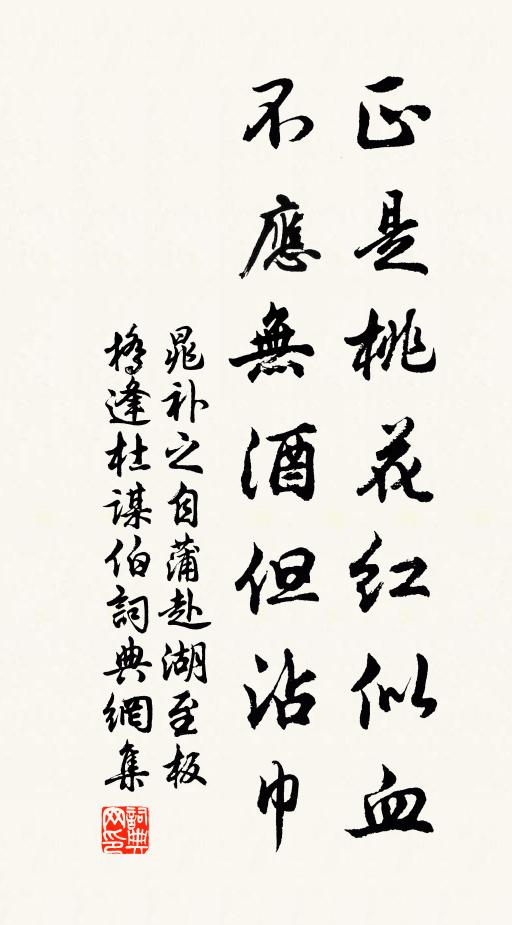 正是桃花红似血
不應無酒但沾巾
晁补之自蒲赴湖至板
橋逢杜謀伯詞典網集
詞典
网印